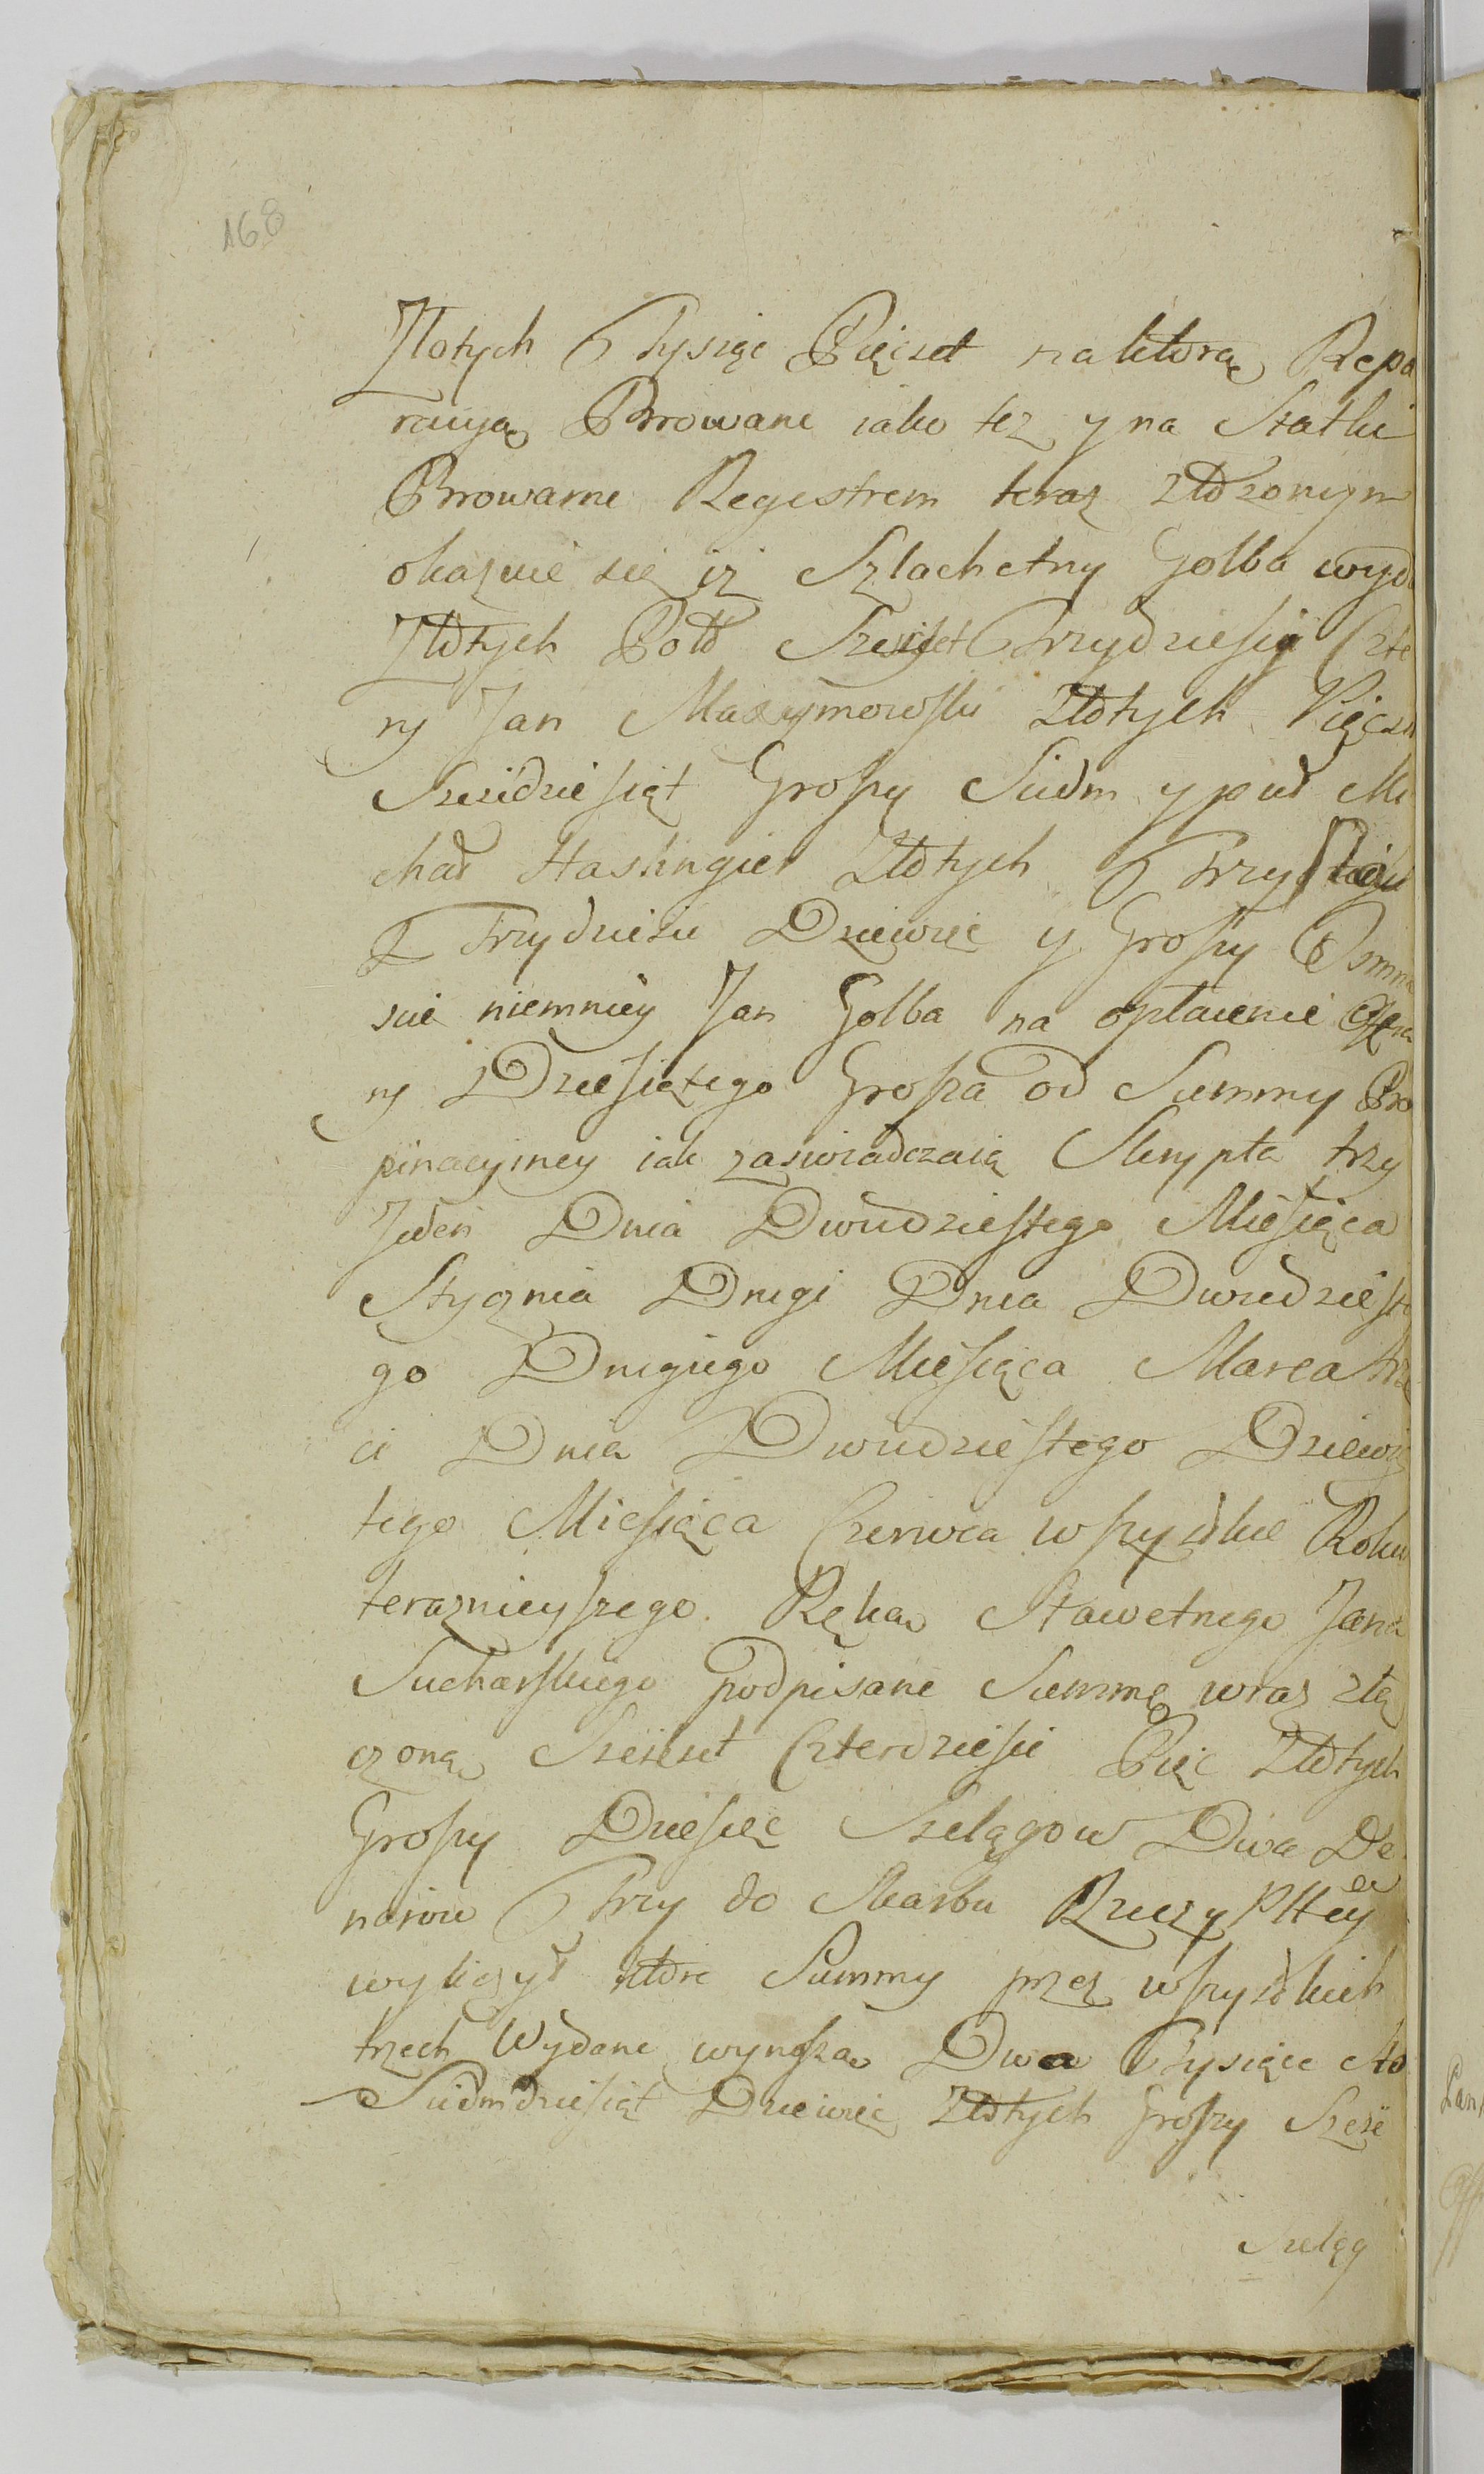 168
Złotych Tysiąc Pięcset na którą Repa
racyią Browaru iako tez y na Statki
Browarne Regestrem teraz złożonym
okazuie się iż Szlachetny Golba wyd
Złotych Pols Szescset Trzydziesci Czte
ry Jan Maxymowski Złotych Pięcse
Szescdziesiąt Groszy Siedm y puł Mi
chał Haslingier Złotych Trzysta
Trzydziesci Dziewięc y Groszy Osmna
scie niemniey Jan Golba na opłacenie Ofiar
ny Dziesiątego Grosza od Summy Pro
pinacyiney iak zaswiadczaią Skrypta trzy
Jeden Dnia Dwudziestego Miesiąca
Stycznia Drugi Dnia Dwudzieste
go Drugiego Miesiąca Marca trze
ci Dnia Dwudziestego Dziewią
tego Miesiąca Czerwca wszystkie Roku
teraznieyszego Ręką Sławetnego Jana
Sucharskiego podpisane Summę wraz złą
czoną Szescset Czterdziesci Pięc Złotych
Groszy Dziesięc Szelągow Dwa De
narow Trzy do Skarbu Rzeczy Pltey
wyliczył które Summy przez wszystkich
trzech Wydane wynoszą Dwa Tysiące sto
Siedmdziesiąt Dziewięc Złotych Groszy Szesc
Szeląg